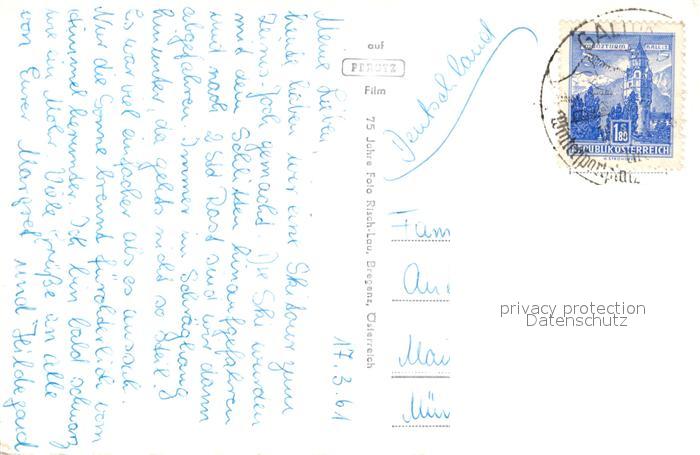 17.3.61
Meine Lieben,
heute haben wir eine Skitour zum
Zeinis-Joch gemacht. Die Ski wurden
mit dem Schlitten hinaufgefahren
und nach 2 Std Rast sind wir dann
abgefahren. Immer im Schräghang
hinunter, da gehts nicht so steil!
Es war viel einfacher als es aussah.
Nur die Sonne brennt fürchterlich vom
Himmel herunter. Ich bin bald schwarz
wie ein Mohr. Viele Grüße an alle
von Eurer Margret und Hildegard
auf
PERUTZ
Film
75 Jahre Foto Risch-Lau, Bregenz, Österreich
Deutschland
Fam
Mai
Mün
GALTÜR
Wintersportplatz
1.80
REPUBLIK ÖSTERREICH
privacy protection
Datenschutz